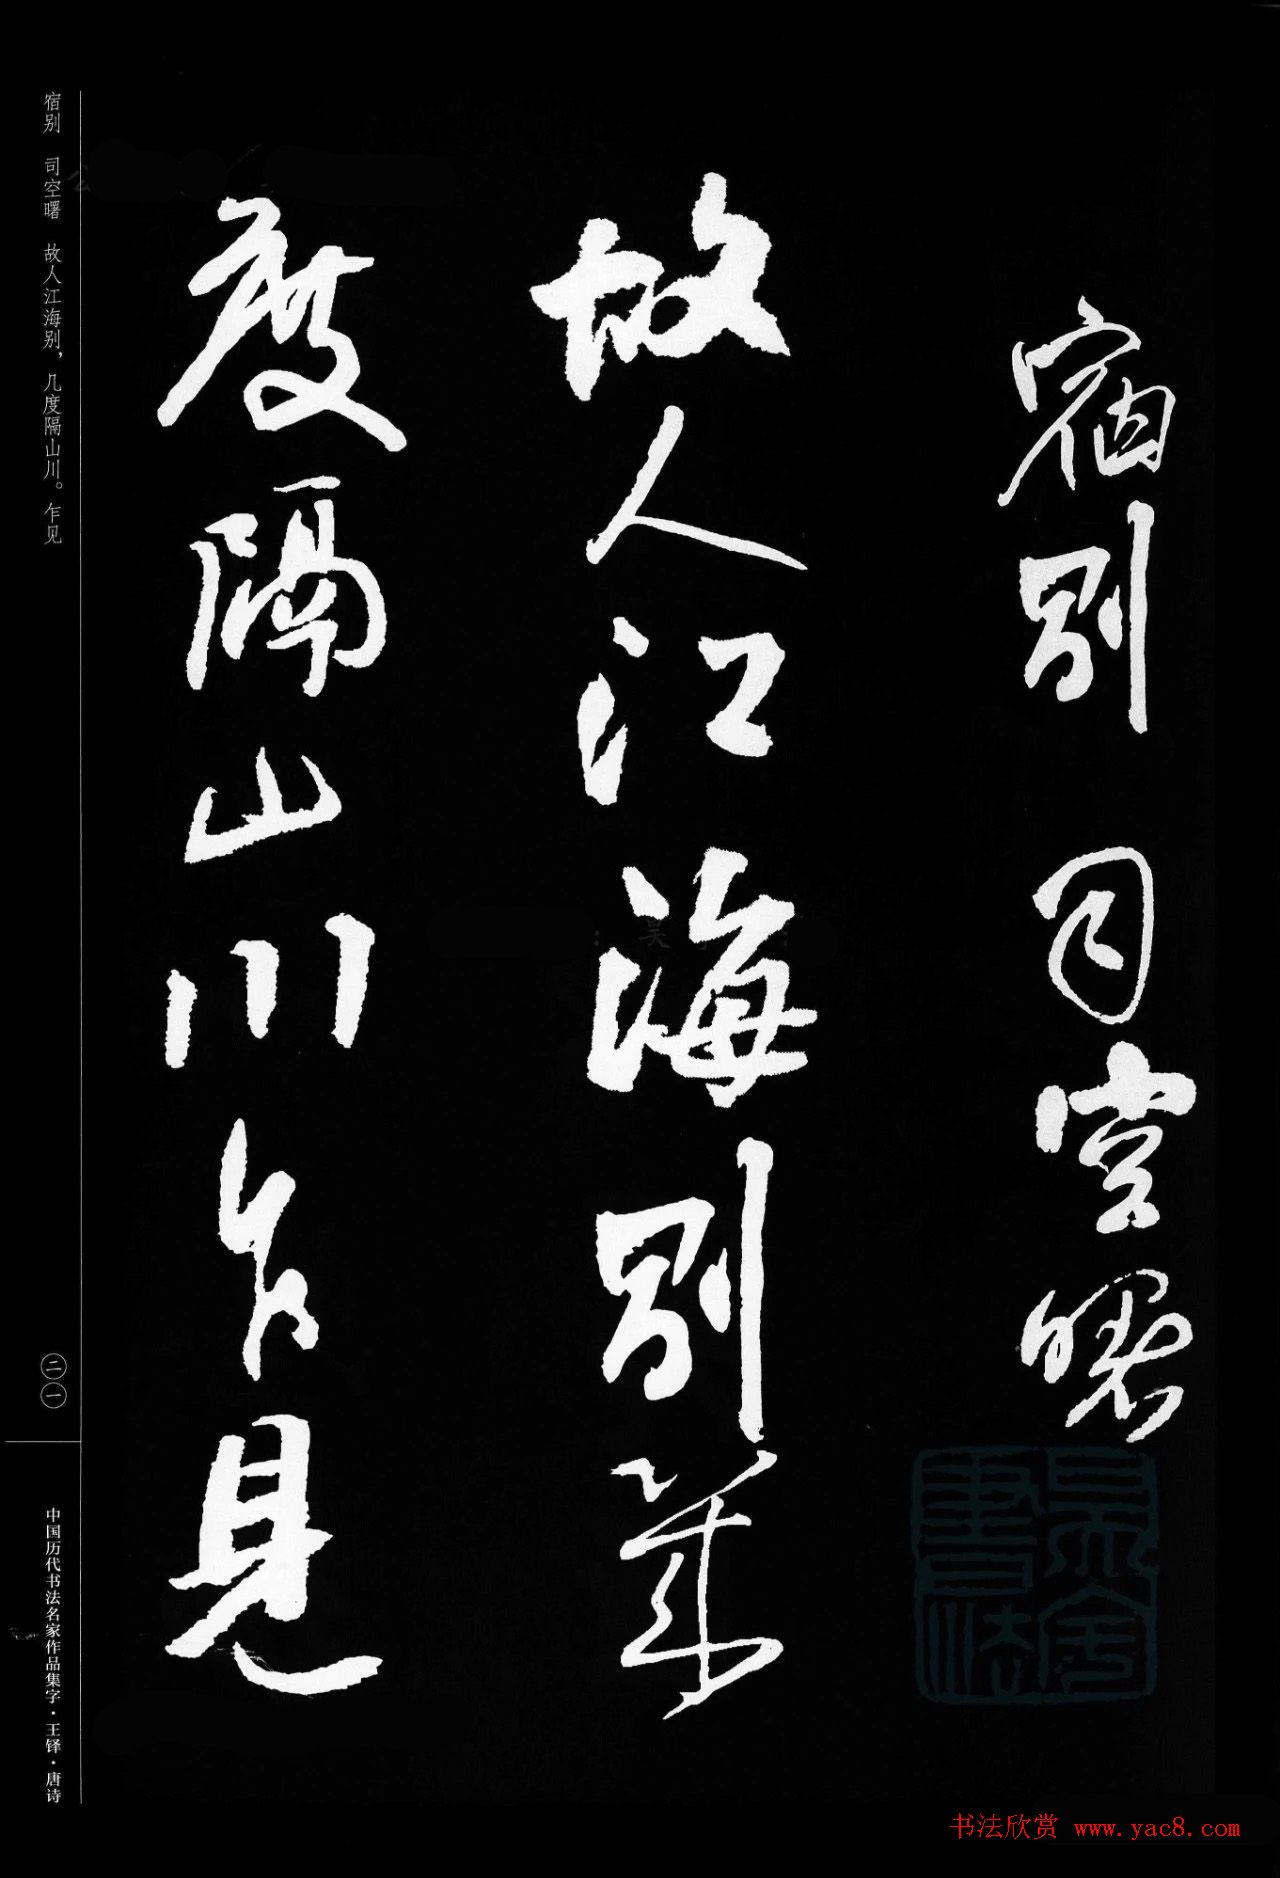 宿别 司空曙
故人江海别幾
度隔山川乍見
宿别 司空曙 故人江海别，几度隔山川。乍见
二一
中国历代书法名家作品集字·王铎·唐诗
书法欣赏 www.yac8.com